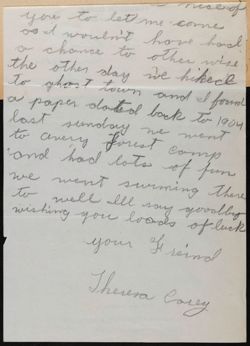 nice of
you to let me come
as I wouldn't have had
a chance to other wise
the other day we hiked
to ghost town and I found
a paper dated back to 1904
last sunday we went
to avery Forest Camp
and had lots of fun
we went swiming there
to well Ill say goodby
wishing you loads of luck
your Freind
Theresa Corey